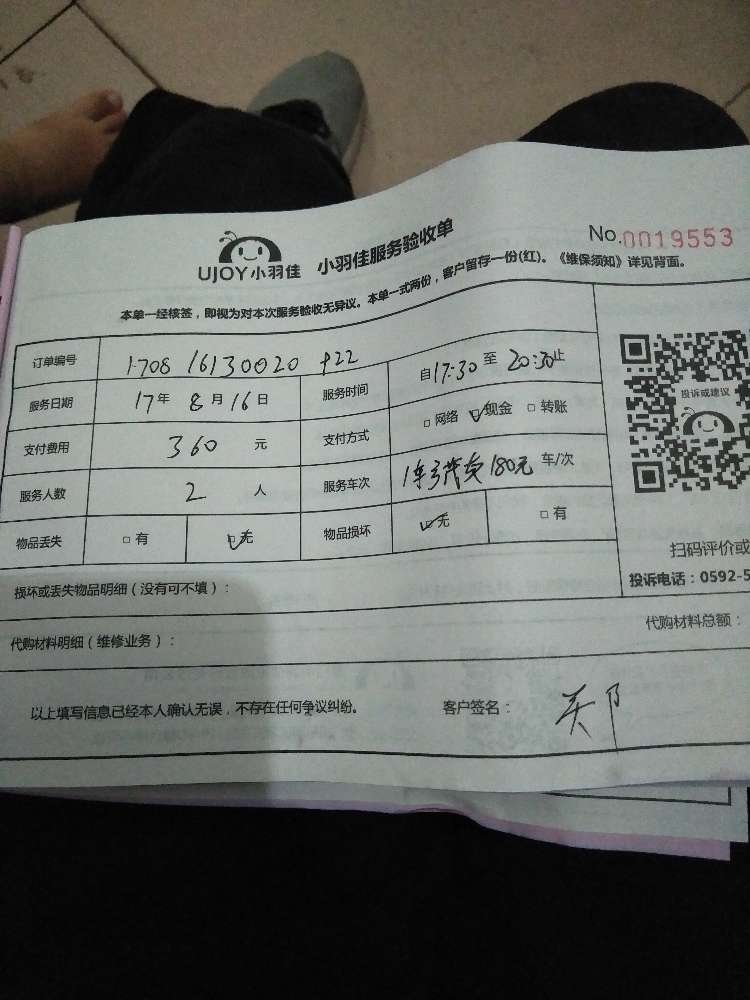 UJOY小羽佳 小羽佳服务验收单 No.0019553
本单一经核签，即视为对本次服务验收无异议。本单一式两份，客户留存一份(红)。《维保须知》详见背面。
订单编号 1708 16130020 922
服务日期 17年 8月16日 服务时间 自17:30至20:30止
支付费用 360 元 支付方式 □网络 ☑现金 □转账
服务人数 2 人 服务车次 180元 车/次
物品丢失 □有 ☑无 物品损坏 ☑无 □有
投诉或建议
扫码评价或
投诉电话：0592-5
损坏或丢失物品明细（没有可不填）：
代购材料明细（维修业务）： 代购材料总额：
以上填写信息已经本人确认无误，不存在任何争议纠纷。 客户签名：郑